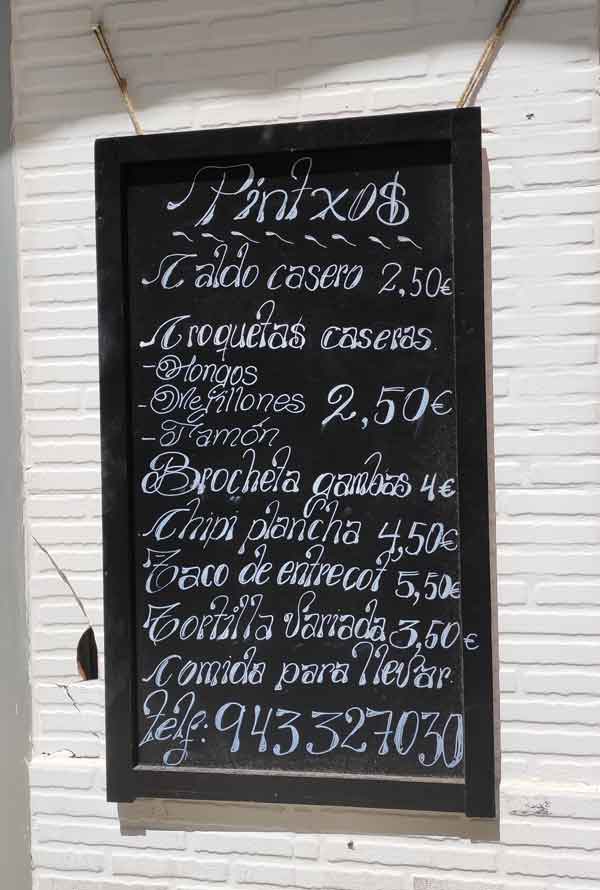 Pintxos
Caldo casero 2,50€
Croquetas caseras.
- Hongos
- Mejillones 2,50€
- Jamón
Brocheta gambas 4€
Chipi plancha 4,50€
Taco de entrecot 5,50€
Tortilla variada 3,50€
Comida para llevar.
telf: 943 327030